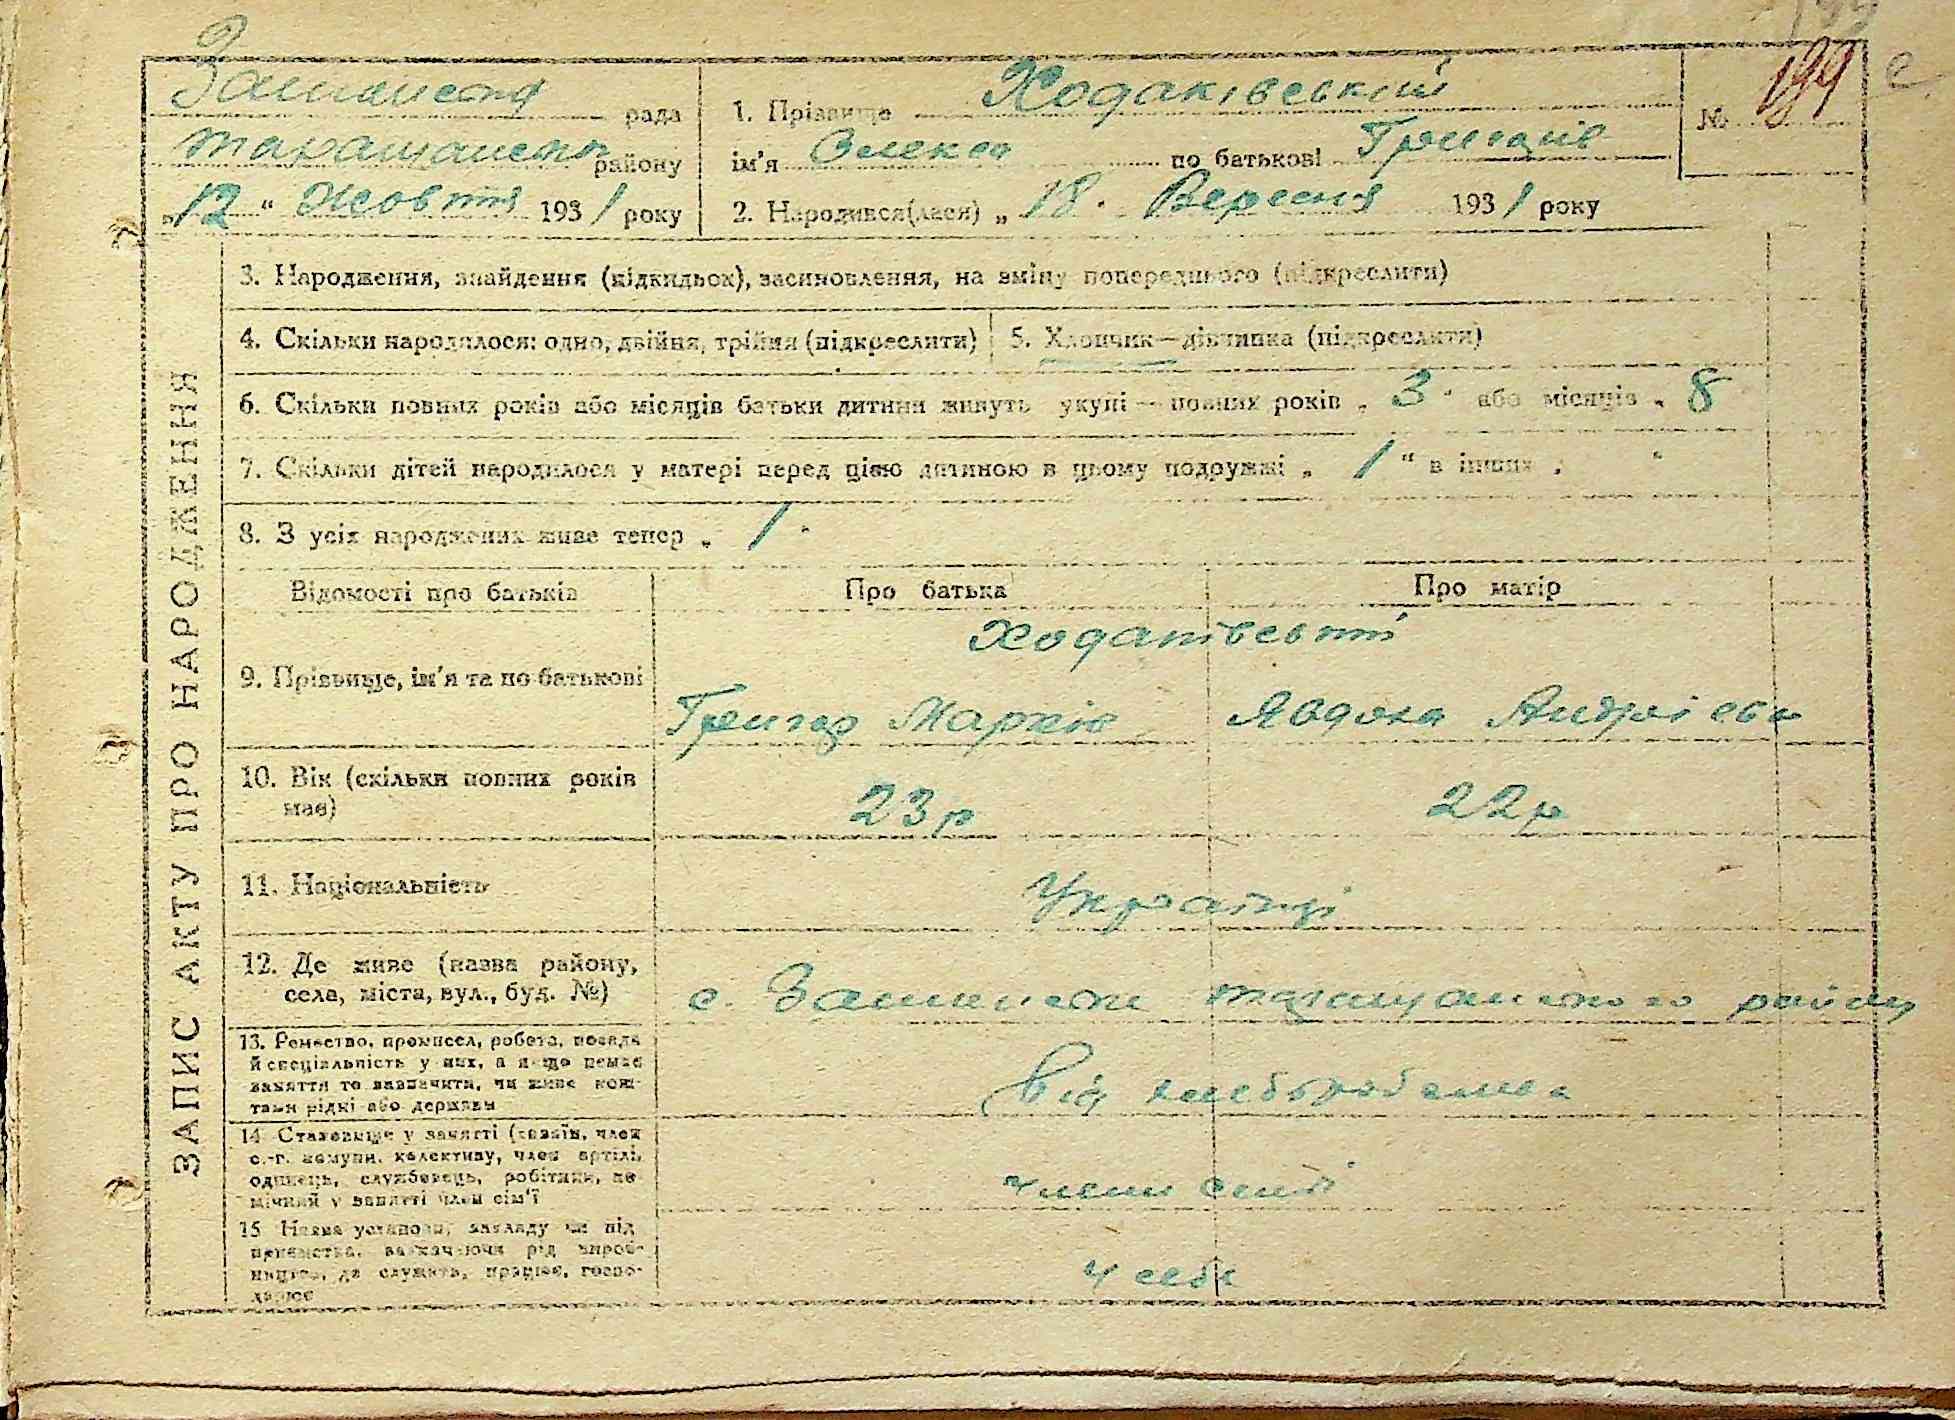 рада
1. Прізвище Ходаківський
№ 199
району
ім'я Олекса по батькові Григорів
„12“ Жовтня 1931 року
2. Народився(лася) „18. Вересня 1931 року
3. Народження, знайдення (підкидьок), засиновлення, на зміну попереднього (підкреслити)
4. Скільки народилося: одно, двійня, трійня (підкреслити)
5. Хлопчик—дівчинка (підкреслити)
6. Скільки повних років або місяців батьки дитини живуть укупі — повних років „ 3 " або місяців „ 8
7. Скільки дітей народилося у матері перед цією дитиною в цьому подружжі „ 1 “ в інших „ “
8. З усіх народжених живе тепер „ 1 "
ЗАПИС АКТУ ПРО НАРОДЖЕННЯ
Відомості про батьків
Про батька
Про матір
9. Прізвище, ім'я та по батькові
Ходаківські
Григор Марків
Явдоха Андріева
10. Вік (скільки повних років має)
23 р
22 р
11. Національність
Українці
12. Де живе (назва району,
села, міста, вул., буд. №)
с. таращанського району
13. Ремество, промисел, робота, посада
й спеціальність у них, а якщо немає
заняття то зазначити, чи живе кош-
тами рідні або держави
Від хлеборобства
14. Становище у занятті (хазяїн, член
с.-г. комуни, колективу, член артілі,
одинець, службовець, робітник, по-
мічний у занятті член сім'ї
члени семї
15. Назва установи, закладу чи під-
приємства, зазначаючи рід вироб-
ництва, де служить, працює, госпо-
дарює
у себе